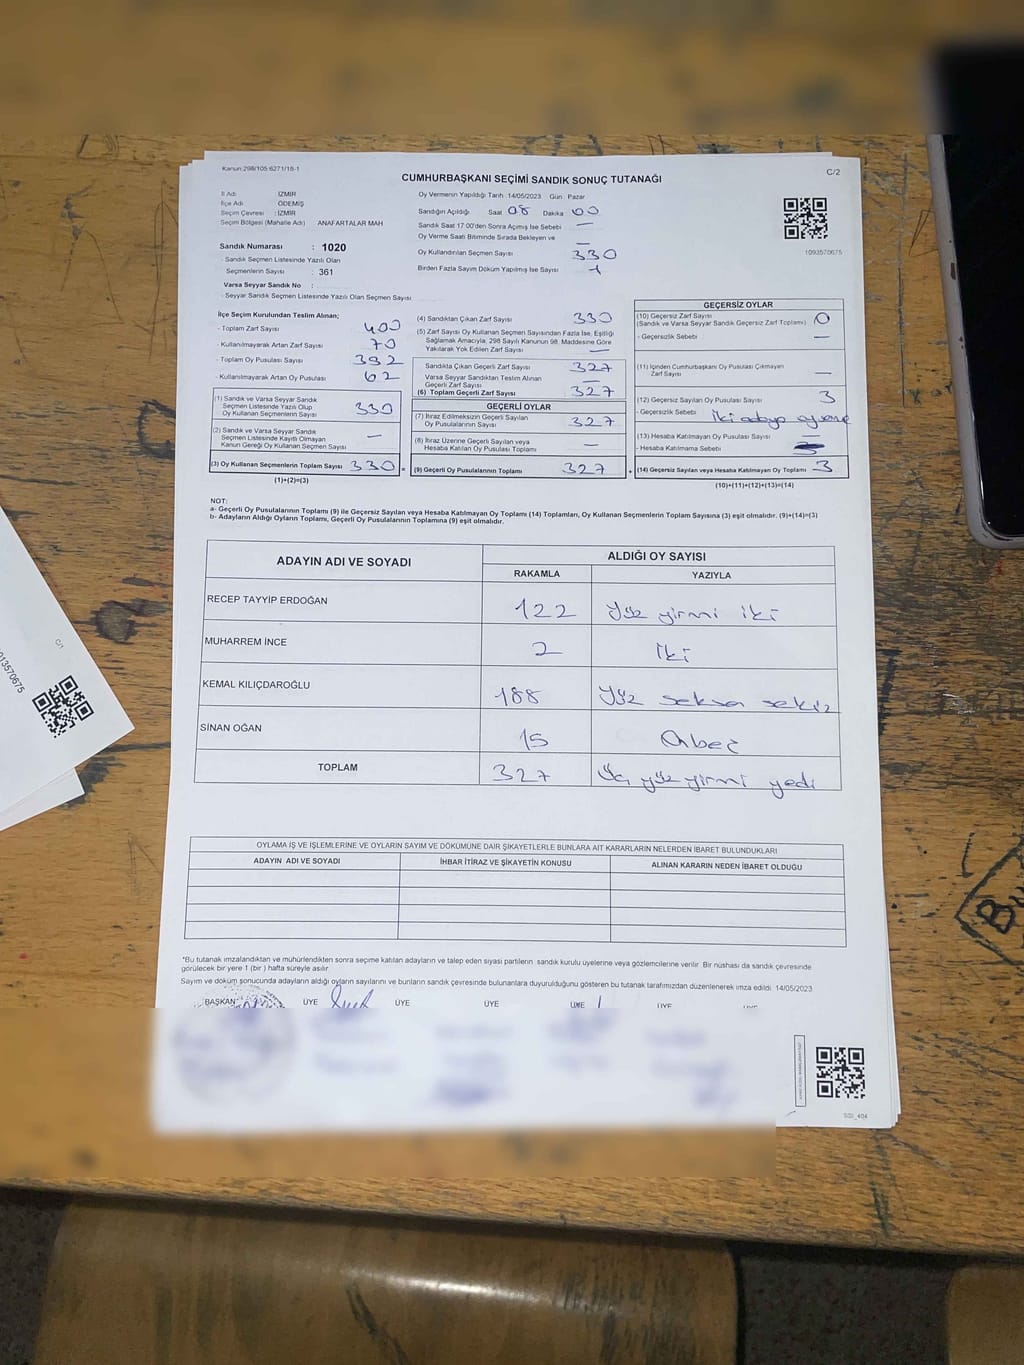 Kanun:298/105:6271/18-1
C/2
CUMHURBAŞKANI SEÇİMİ SANDIK SONUÇ TUTANAĞI
İl Adı : İZMİR
İlçe Adı : ÖDEMİŞ
Seçim Çevresi : İZMİR
Seçim Bölgesi (Mahalle Adı) : ANAFARTALAR MAH
Sandık Numarası : 1020
- Sandık Seçmen Listesinde Yazılı Olan
Seçmenlerin Sayısı : 361
Varsa Seyyar Sandık No :
- Seyyar Sandık Seçmen Listesinde Yazılı Olan Seçmen Sayısı :
Oy Vermenin Yapıldığı Tarih :14/05/2023 Gün : Pazar
Sandığın Açıldığı Saat 08 Dakika 00
Sandık Saat 17:00'den Sonra Açılmış İse Sebebi —
Oy Verme Saati Bitiminde Sırada Bekleyen ve
Oy Kullandırılan Seçmen Sayısı —
330
Birden Fazla Sayım Döküm Yapılmış İse Sayısı 1
1093570675
İlçe Seçim Kurulundan Teslim Alınan;
- Toplam Zarf Sayısı 400
- Kullanılmayarak Artan Zarf Sayısı 70
- Toplam Oy Pusulası Sayısı 392
- Kullanılmayarak Artan Oy Pusulası 62
(1) Sandık ve Varsa Seyyar Sandık
Seçmen Listesinde Yazılı Olup
Oy Kullanan Seçmenlerin Sayısı 330
(2) Sandık ve Varsa Seyyar Sandık
Seçmen Listesinde Kayıtlı Olmayan
Kanun Gereği Oy Kullanan Seçmen Sayısı —
(3) Oy Kullanan Seçmenlerin Toplam Sayısı 330 =
(1)+(2)=(3)
(4) Sandıktan Çıkan Zarf Sayısı 330
(5) Zarf Sayısı Oy Kullanan Seçmen Sayısından Fazla İse, Eşitliği
Sağlamak Amacıyla, 298 Sayılı Kanunun 98. Maddesine Göre
Yakılarak Yok Edilen Zarf Sayısı —
Sandıkta Çıkan Geçerli Zarf Sayısı 327
Varsa Seyyar Sandıktan Teslim Alınan
Geçerli Zarf Sayısı —
(6) Toplam Geçerli Zarf Sayısı 327
GEÇERLİ OYLAR
(7) İtiraz Edilmeksizin Geçerli Sayılan
Oy Pusulalarının Sayısı 327
(8) İtiraz Üzerine Geçerli Sayılan veya
Hesaba Katılan Oy Pusulaları Toplamı —
(9) Geçerli Oy Pusulalarının Toplamı 327 +
GEÇERSİZ OYLAR
(10) Geçersiz Zarf Sayısı
(Sandık ve Varsa Seyyar Sandık Geçersiz Zarf Toplamı) 0
- Geçersizlik Sebebi —
(11) İçinden Cumhurbaşkanı Oy Pusulası Çıkmayan
Zarf Sayısı —
(12) Geçersiz Sayılan Oy Pusulası Sayısı 3
- Geçersizlik Sebebi İki adaya
(13) Hesaba Katılmayan Oy Pusulası Sayısı —
- Hesaba Katılmama Sebebi
(14) Geçersiz Sayılan veya Hesaba Katılmayan Oy Toplamı 3
(10)+(11)+(12)+(13)=(14)
NOT:
a- Geçerli Oy Pusulalarının Toplamı (9) ile Geçersiz Sayılan veya Hesaba Katılmayan Oy Toplamı (14) Toplamları, Oy Kullanan Seçmenlerin Toplam Sayısına (3) eşit olmalıdır. (9)+(14)=(3)
b- Adayların Aldığı Oyların Toplamı, Geçerli Oy Pusulalarının Toplamına (9) eşit olmalıdır.
ADAYIN ADI VE SOYADI
ALDIĞI OY SAYISI
RAKAMLA YAZIYLA
RECEP TAYYİP ERDOĞAN 122 Yüz yirmi iki
MUHARREM İNCE 2 İki
KEMAL KILIÇDAROĞLU 188 Yüz seksen sekiz
SİNAN OĞAN 15 Onbeş
TOPLAM 327 Üç yüz yirmi yedi
OYLAMA İŞ VE İŞLEMLERİNE VE OYLARIN SAYIM VE DÖKÜMÜNE DAİR ŞİKAYETLERLE BUNLARA AİT KARARLARIN NELERDEN İBARET BULUNDUKLARI
ADAYIN ADI VE SOYADI İHBAR İTİRAZ VE ŞİKAYETİN KONUSU ALINAN KARARIN NEDEN İBARET OLDUĞU
*Bu tutanak imzalandıktan ve mühürlendikten sonra seçime katılan adayların ve talep eden siyasi partilerin sandık kurulu üyelerine veya gözlemcilerine verilir. Bir nüshası da sandık çevresinde
görülecek bir yere 1 (bir ) hafta süreyle asılır.
Sayım ve döküm sonucunda adayların aldığı oyların sayılarını ve bunların sandık çevresinde bulunanlara duyurulduğunu gösteren bu tutanak tarafımızdan düzenlenerek imza edildi. 14/05/2023
BAŞKAN ÜYE ÜYE ÜYE ÜYE ÜYE
SSI_404
C/1